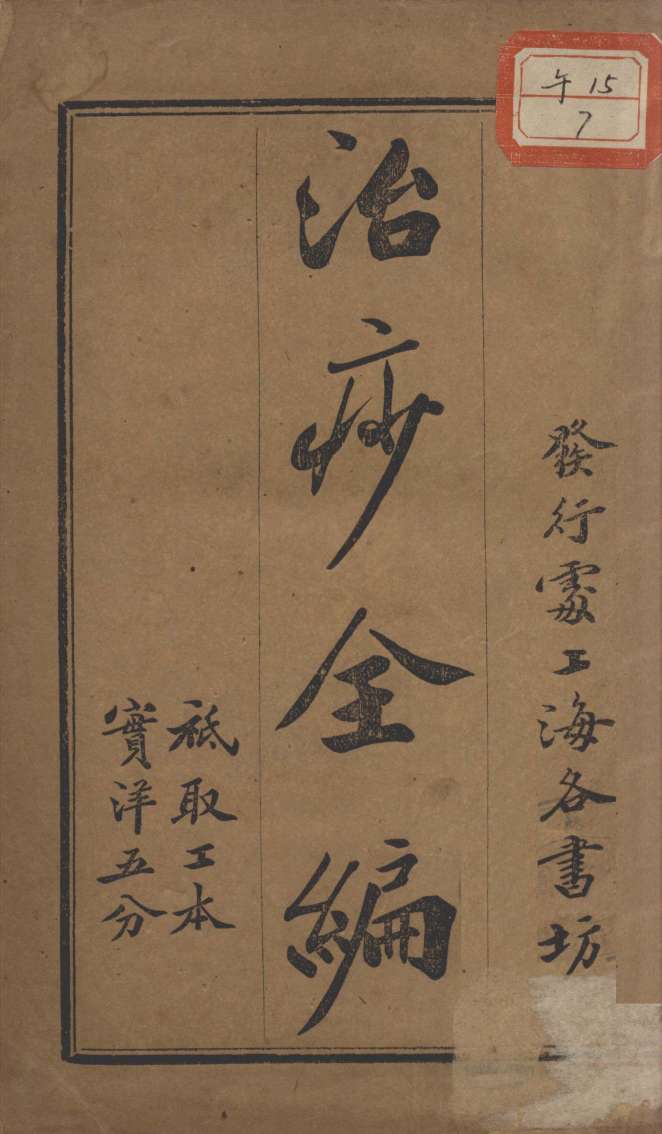 午 15
7
發行處上海各書坊
治痧全編
祗取工本
實洋五分